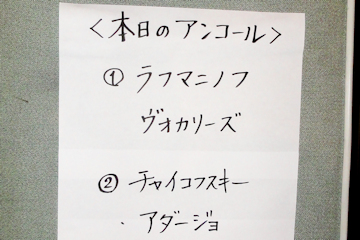 ＜本日のアンコール＞
① ラフマニノフ
ヴォカリーズ
② チャイコフスキー
・アダージョ